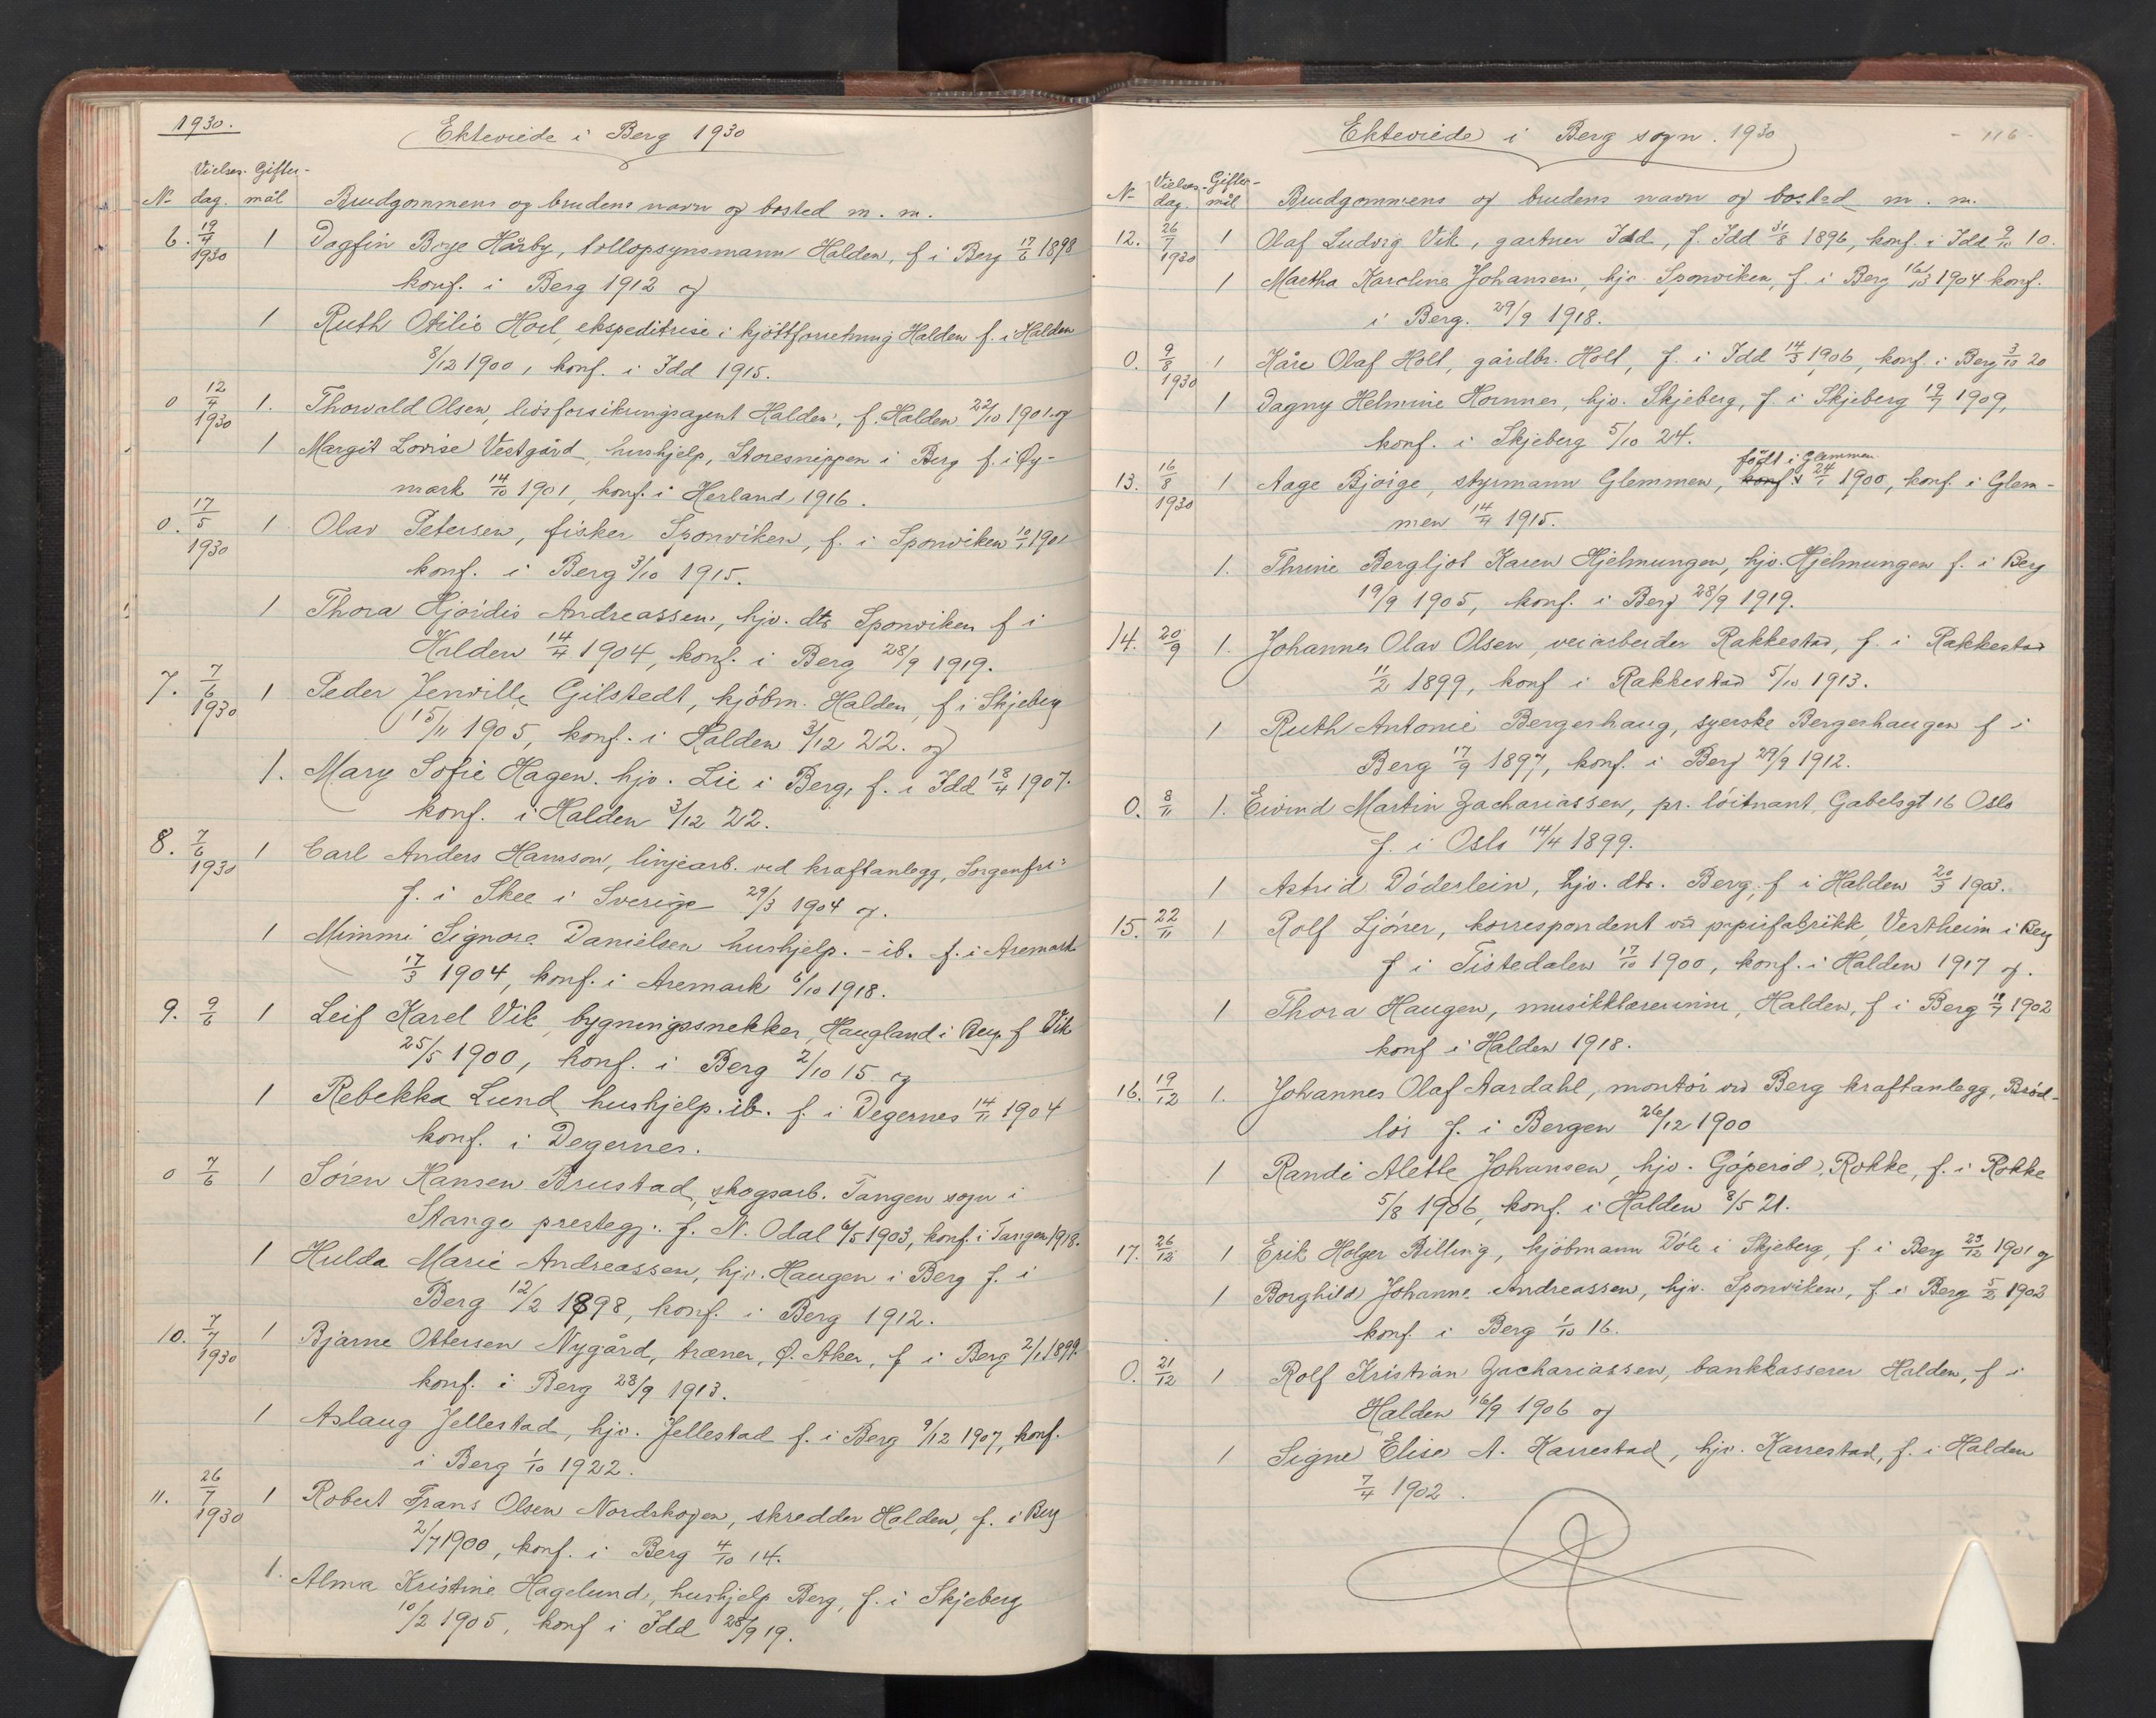 1930.
Ekteviede i Berg 1930
Vielses- Gifter-
Nr dag. mål Brudgommens og brudens navn og bosted m. m.
6. 19/4 1930 1 Dagfin Boye Hårby, tollopsynsmann Halden, f i Berg 17/6 1898
konf. i Berg 1912 og
1 Ruth Otilie Hoel, ekspeditrise i kjöttforretning Halden f. i Halden
8/12 1900, konf. i Idd 1915.
0 12/4 1930 1. Thorvald Olsen, livsforsikringsagent Halden, f. Halden 22/10 1901. og
1 Margit Lovise Vestgård, hushjelp, Storesnippen i Berg f. i Øy-
mark 14/10 1901, konf. i Herland 1916.
0. 17/5 1930 1 Olav Petersen, fisker Sponviken, f. i Sponviken 10/1 1901
konf. i Berg 3/10 1915.
1 Thora Hjördis Andreassen, hjv. dtr Sponviken f i
Halden 14/4 1904, konf. i Berg 28/9 1919.
7. 7/6 1930 1 Peder Jenville Gilstedt, kjöbm. Halden, f i Skjeberg
15/11 1905, konf. i Halden 3/12 22. og
1. Mary Sofie Hagen. hjv. Lie i Berg, f. i Idd 18/4 1907.
konf. i Halden 3/12 22.
8. 7/6 1930 1 Carl Anders Hansson, linjearb. ved kraftanlegg, Sorgenfri
f. i Skee i Sverige 29/3 1904 og.
1 Mimmi Signora Danielsen hushjelp. - ib. f. i Aremark
17/3 1904, konf. i Aremark 6/10 1918.
9. 9/6 1 Leif Karel Vik, bygningssnekker, Haugland i Berg. f Vik
25/5 1900, konf. i Berg 2/10 15 og
1 Rebekka Lund hushjelp. ib. f. i Degernes 14/11 1904
konf. i Degernes.
0 7/6 1 Sören Hansen Brustad, skogsarb. Tangen sogn i
Stange prestegj. f. N. Odal 6/5 1903, konf. i Tangen 1918.
1 Hulda Marie Andreassen, hjv. Haugen i Berg f. i
Berg 12/2 1898, konf. i Berg 1912.
10. 7/7 1930 1 Bjarne Ottersen Nygård, træner, Ø. Aker, f i Berg 2/1 1899.
konf. i Berg 28/9 1913.
1 Aslaug Jellestad, hjv. Jellestad f. i Berg 9/12 1907, konf.
i Berg 1/10 1922.
11. 26/7 1930 1 Robert Frans Olsen Nordskogen, skredder Halden, f. i Berg
2/7 1900, konf. i Berg 4/10 14.
1. Alma Kristine Hagelund, hushjelp Berg, f. i Skjeberg
10/2 1905, konf i Idd 28/9 19.
Ekteviede i Berg sogn. 1930
- 116 -
Nr Vielses- dag. Gifter- mål Brudgommens og brudens navn og bosted m. m.
12. 26/7 1930 1 Olaf Ludvig Vik, gartner Idd, f. Idd 31/8 1896, konf. i Idd 9/10 10.
1 Martha Karoline Johansen, hjv. Sponviken, f. i Berg 16/3 1904 konf.
i Berg. 29/9 1918.
0. 9/8 1930 1 Kåre Olaf Holt, gårdbr. Holt, f. i Idd 14/3 1906, konf. i Berg 3/10 20
1 Dagny Helmine Hornnes, hjv. Skjeberg, f. i Skjeberg 19/7 1909,
konf. i Skjeberg 5/10 24.
födt i Glemmen
13. 16/8 1930 1 Aage Bjöige, styrmann Glemmen, konf i 24/1 1900, konf. i Glem-
men 14/4 1915.
1. Thrine Bergljot Karen Hjelmungen, hjv. Hjelmungen f. i Berg
19/9 1905, konf. i Berg 28/9 1919.
14. 20/9 1. Johannes Olav Olsen, veiarbeider Rakkestad, f. i Rakkestad
11/2 1899, konf i Rakkestad 5/10 1913.
1 Ruth Antonie Bergerhaug, syerske Bergerhaugen f i
Berg 17/9 1897, konf. i Berg 29/9 1912.
0. 8/11 1. Eivind Martin Zachariassen, pr. löitnant, Gabelsgt 16 Oslo
f. i Oslo 14/4 1899.
1 Astrid Döderlein, hjv. dtr. Berg, f i Halden 20/3 1903.
15. 22/11 1 Rolf Ljöner, korrespondent ved papirfabrikk, Vestheim i Berg
f i Tistedalen 17/10 1900, konf. i Halden 1917 og.
1 Thora Haugen, musikklærerinne, Halden, f i Berg 18/7 1902
konf i Halden 1918.
16. 19/12 1. Johannes Olaf Aardahl, montör ved Berg kraftanlegg, Bröd-
lös f. i Bergen 26/12 1900
1 Randi Alette Johansen, hjv. Göperöd, Rokke, f. i Rokke
5/8 1906, konf. i Halden 8/5 21.
17. 26/12 1 Erik Holger Billing, kjöbmann Döle i Skjeberg, f. i Berg 23/12 1901 og
1 Borghild Johanne Andreassen, hjv. Sponviken, f i Berg 5/2 1902
konf. i Berg 1/10 16.
0. 21/12 1 Rolf Kristian Zachariassen, bankkasserer Halden, f i
Halden 16/9 1906 og
1 Signe Elise A. Karrestad, hjv. Karrestad, f. i Halden
7/4 1902.